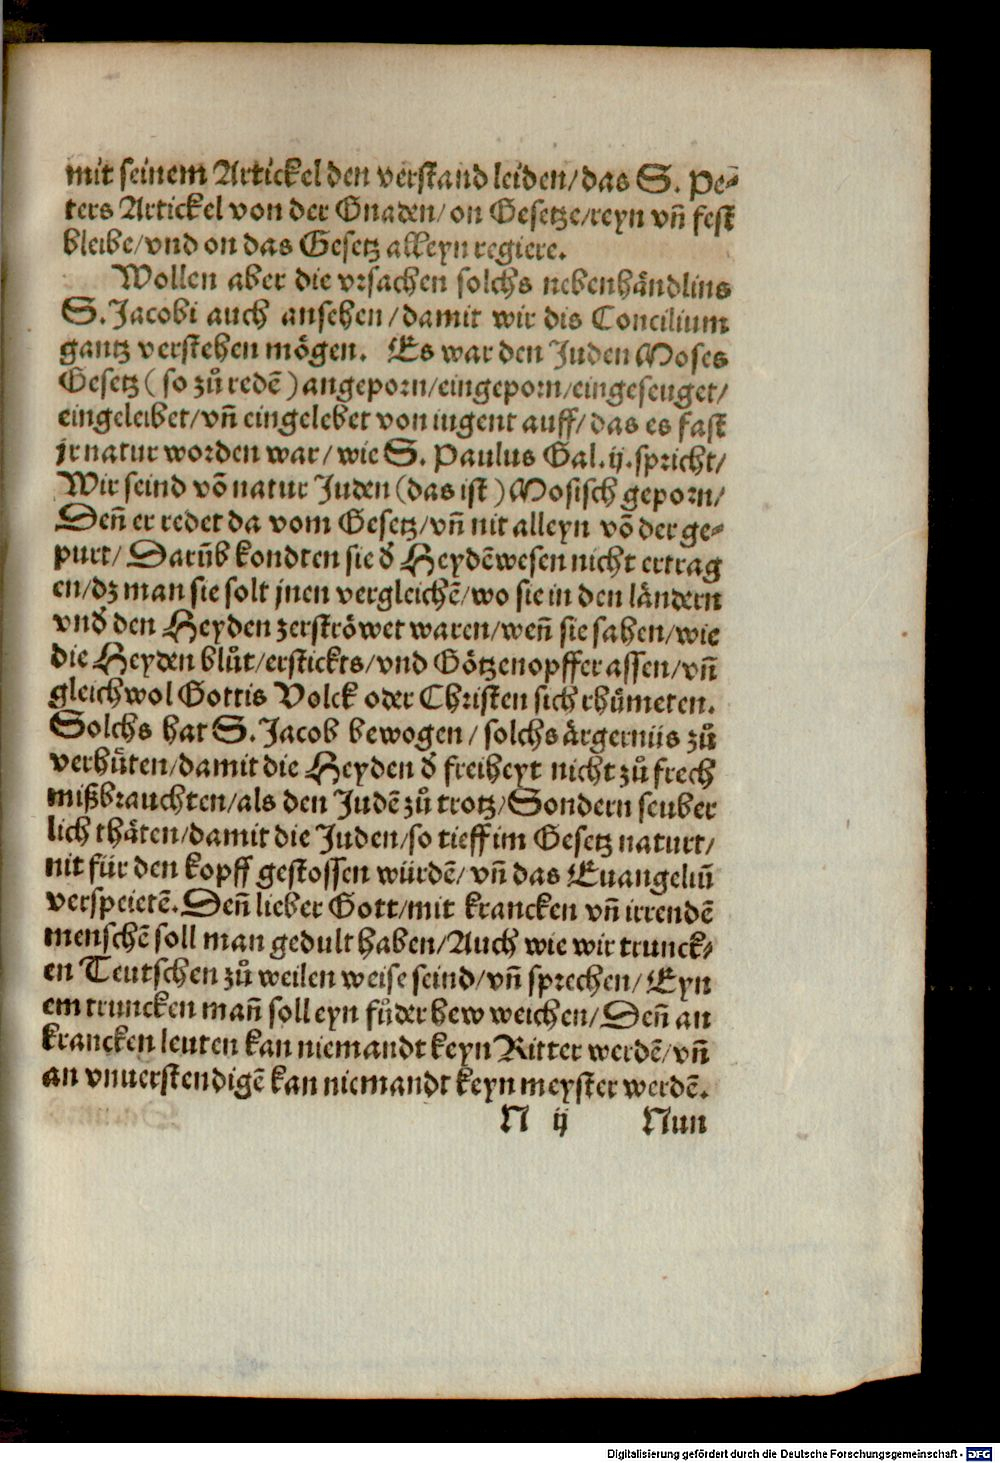 mit seinem Artickel den verstand leiden/das S. Pe-
ters Artickel von der Gnaden/on Gesetze/reyn vñ fest
bleibe/vnd on das Gesetz alleyn regiere.
Wollen aber die vrsachen solchs nebenhändlins
S. Jacobi auch ansehen/damit wir dis Concilium
gantz verstehen mögen. Es war den Juden Moses
Gesetz (so zů redẽ) angeporn/eingeporn/eingeseuget/
eingeleibet/vñ eingelebet von iugent auff/das es fast
jr natur worden war/wie S. Paulus Gal. ij. spricht/
Wir seind võ natur Juden (das ist) Mosisch geporn/
Deñ er redet da vom Gesetz/vñ nit alleyn võ der ge-
purt/Darũb kondten sie đ Heydẽ wesen nicht ertrag
en/dz man sie solt jnen vergleichẽ/wo sie in den ländern
vnđ den Heyden zerströwet waren/weñ sie sahen/wie
die Heyden blůt/ersticktes/vnd Götzenopffer assen/vñ
gleichwol Gottis Volck oder Christen sich rhůmeten.
Solchs hat S. Jacob bewogen/solchs ärgerniis zů
verhüten/damit die Heyden đ freiheyt nicht zů frech
mißbrauchten/als den Judẽ zů trotz/Sondern seuber
lich thäten/damit die Juden/so tieff im Gesetz naturt/
nit für den kopff gestossen würdẽ/vñ das Euangeliũ
verspeietẽ. Deñ lieber Gott/mit krancken vñ irrendẽ
menschẽ soll man gedult haben/Auch wie wir trunck-
en Teutschen zů weilen weise seind/vñ sprechen/Eyn
em truncken mañ soll eyn fůder hew weichen/Deñ an
krancken leuten kan niemandt keyn Ritter werdẽ/vñ
an vnuerstendigẽ kan niemandt keyn meyster werdẽ.
N ij Nun
Digitalisierung gefördert durch die Deutsche Forschungsgemeinschaft - DFG